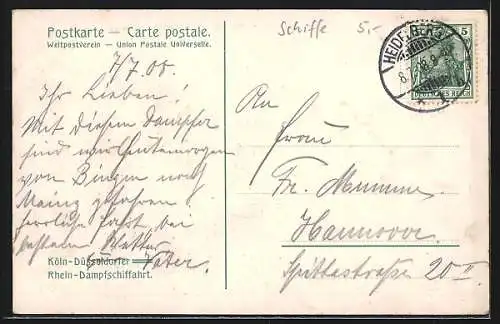 Schiffe 5,-
Postkarte — Carte postale.
Weltpostverein — Union Postale Universelle.
7/7 08.
Ihr Lieben!
Mit diesem Dampfer
sind wir heute morgen
von Bingen nach
Mainz gefahren
herrliche Fahrt bei
bestem Wetter
Vater
Köln-Düsseldorfer
Rhein-Dampfschiffahrt.
HEIDELBERG
8.
5
DEUTSCHES REICH
An
Frau
Fr. Mumme
Hannover
Spittastraße 20 II